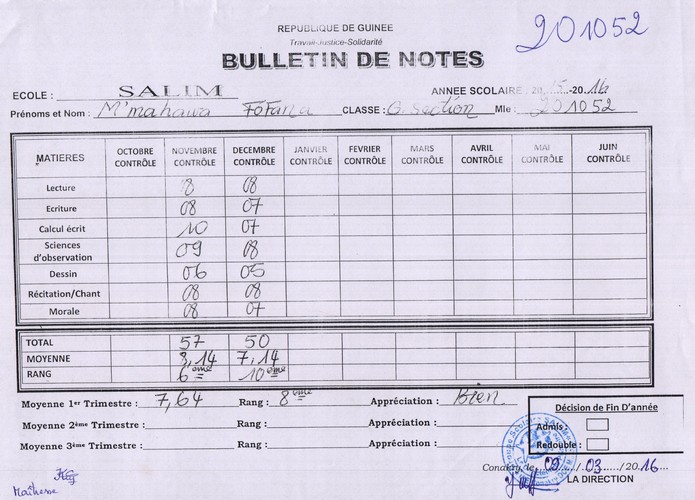 201052
REPUBLIQUE DE GUINEE
Travail-Justice-Solidarité
BULLETIN DE NOTES
ECOLE : SALIM ANNEE SCOLAIRE : 20 15 -20 16
Prénoms et Nom : M'mahawa FOFana CLASSE : G. Section Mle : 201052
MATIERES OCTOBRE CONTRÔLE NOVEMBRE CONTRÔLE DECEMBRE CONTRÔLE JANVIER CONTRÔLE FEVRIER CONTRÔLE MARS CONTRÔLE AVRIL CONTRÔLE MAI CONTRÔLE JUIN CONTRÔLE
Lecture 8 08
Ecriture 08 07
Calcul écrit 10 07
Sciences d'observation 09 08
Dessin 06 05
Récitation/Chant 08 08
Morale 08 07
TOTAL 57 50
MOYENNE 8,14 7,14
RANG 6ème 10ème
Moyenne 1er Trimestre : 7,64 Rang : 8ème Appréciation : Bien
Moyenne 2ème Trimestre : Rang : Appréciation :
Moyenne 3ème Trimestre : Rang : Appréciation :
Décision de Fin D'année
Admis :
Redouble :
Conakry, le 09 / 03 / 20 16
LA DIRECTION